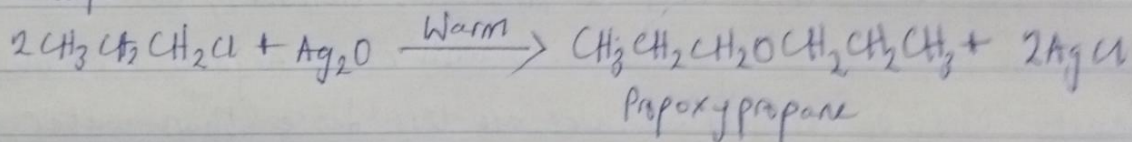 2CH₃CH₂CH₂Cl + Ag₂O —Warm→ CH₃CH₂CH₂OCH₂CH₂CH₃ + 2AgCl
Propoxypropane